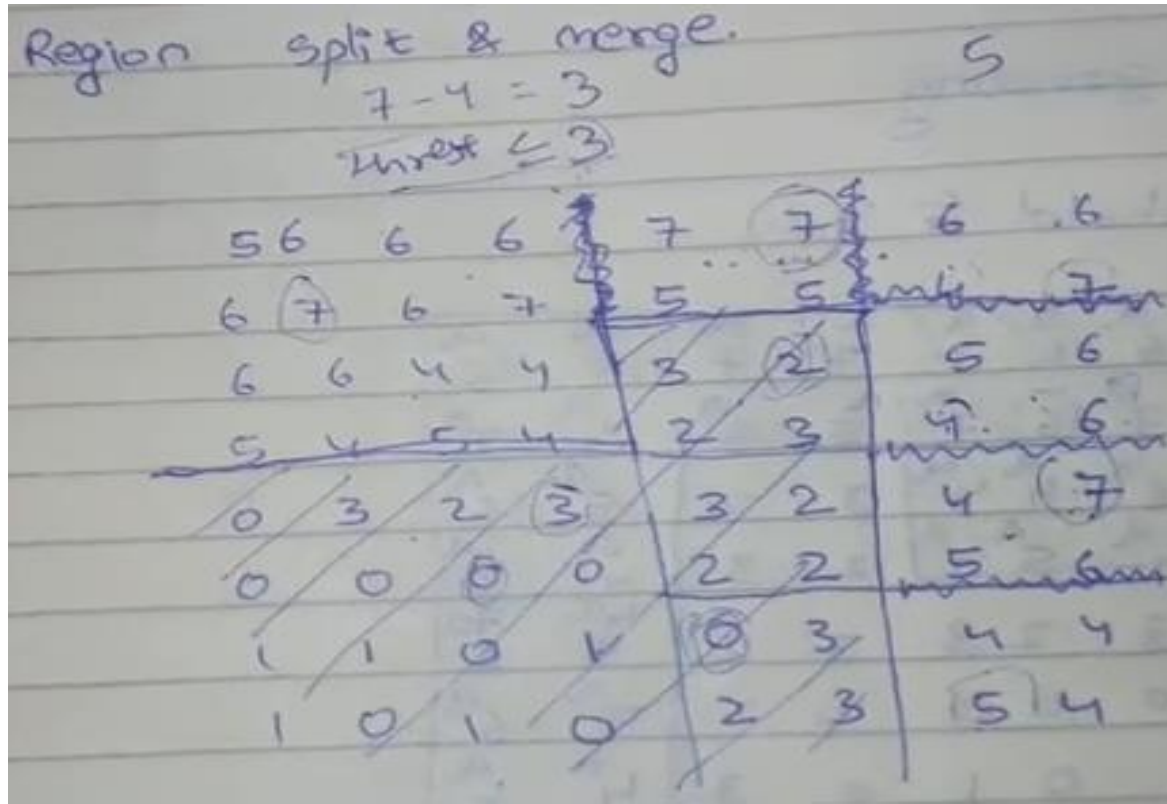 Region split & merge.
5
7 - 4 = 3
≤ 3
5 6 6 6 7 7 6 6
6 7 6 7 5 5 7
6 6 4 4 3 2 5 6
5 4 5 4 2 3 4 6
0 3 2 3 3 2 4 7
0 0 0 0 2 2 5 6
1 1 0 1 0 3 4 4
1 0 1 0 2 3 5 4